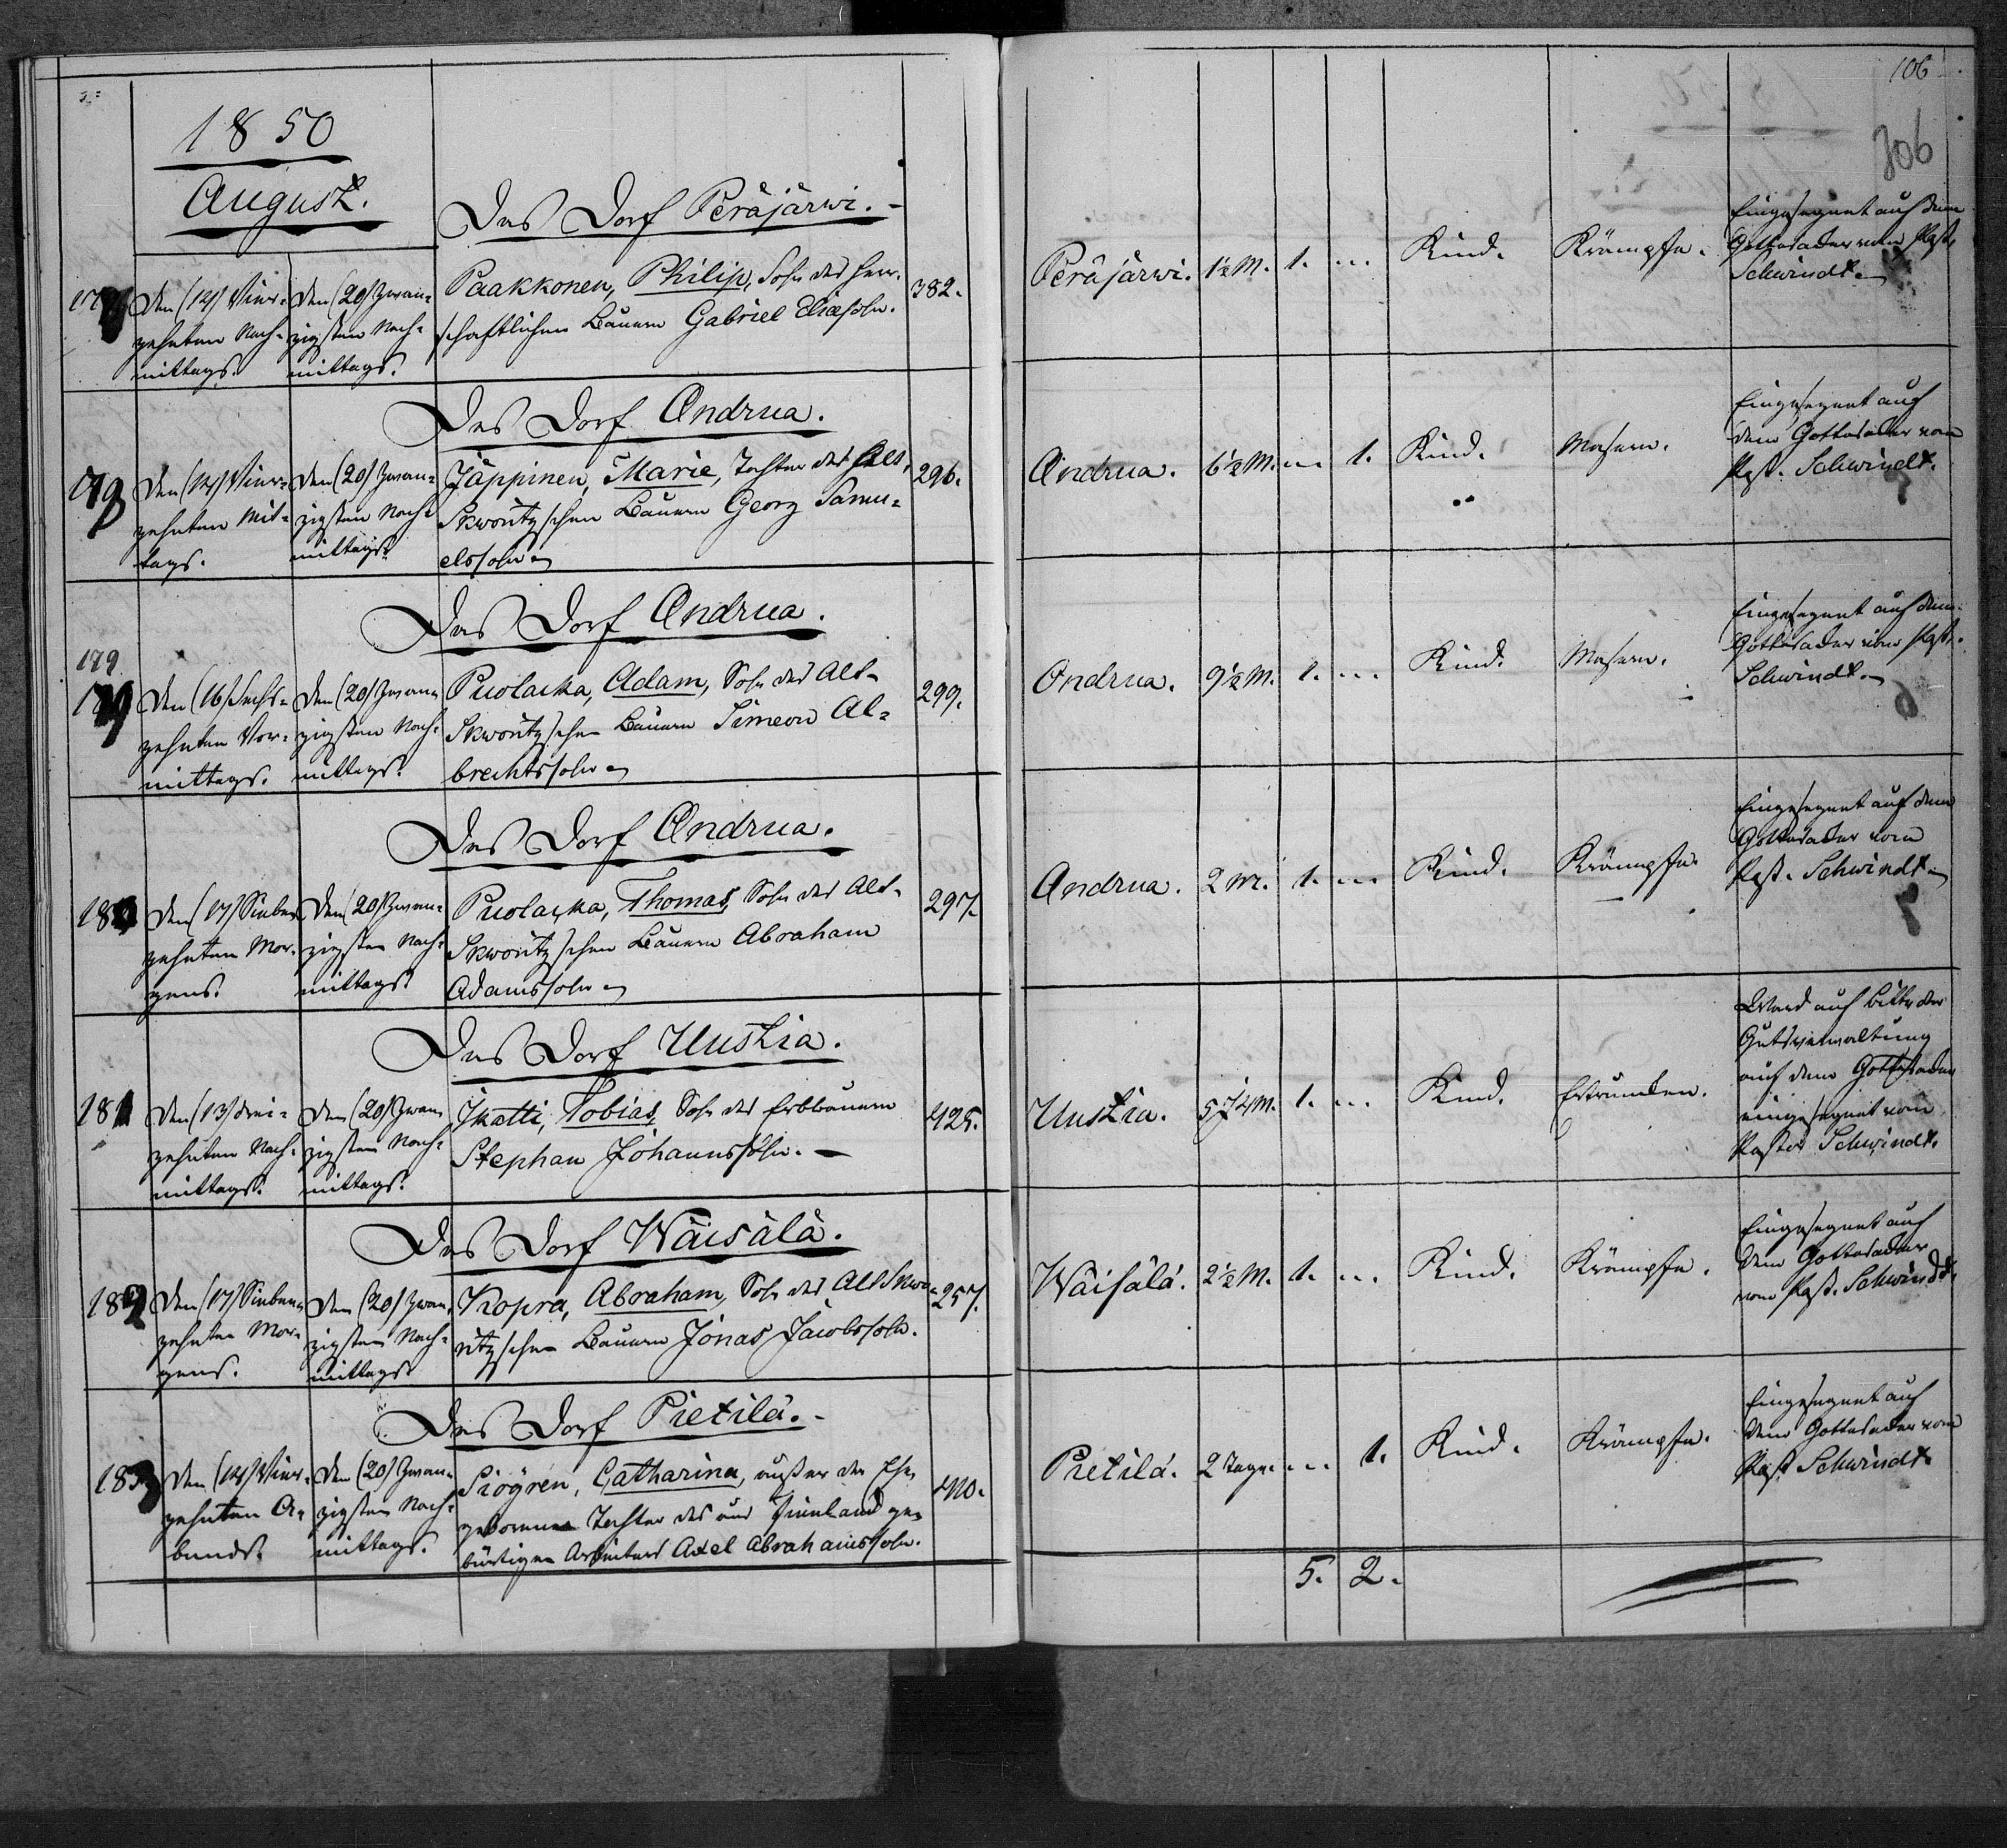 1850
August.
106
106
Das Dorf Peräjärwi.
Den (14) Vier-
zehnten Nach-
mittags.
den (20) zwan-
zigsten Nach-
mittags.
Paakkonen, Philip, Sohn des herr-
schaftlichen Bauern Gabriel Eliæsohn.
382.
Peräjärwi. 1½ M. 1. ... Kind. Krämpfe.
Eingesegnet auf dem
Gottesacker vom Past.
Schwindt.
Das Dorf Andrua.
Den (14) Vier-
zehnten Mit-
tags.
den (20) zwan-
zigsten Nach-
mittags.
Jäppinen, Marie, Tochter des Alt-
Skworitzschen Bauern Georg Samu-
elssohn
296.
Andrua. 6½ M. ... 1. Kind. Masern.
Eingesegnet auf
dem Gottesacker vom
Past. Schwindt.
Das Dorf Andrua.
179
179
Den (16) Sechs-
zehnten Vor-
mittags.
den (20) zwan-
zigsten Nach-
mittags.
Puolacka, Adam, Sohn des Alt-
Skworitzschen Bauern Simeon Al-
brechtssohn
299.
Andrua. 9½ M. 1. ... Kind. Masern.
Eingesegnet auf dem
Gottesacker vom Past.
Schwindt.
Das Dorf Andrua.
180
Den (17) Sieben-
zehnten Mor-
gens.
Den (20) zwan-
zigsten Nach-
mittags.
Puolacka, Thomas, Sohn des Alt-
Skworitzschen Bauern Abraham
Adamssohn
297.
Andrua. 2 M. 1. ... Kind. Krämpfe.
Eingesegnet auf dem
Gottesacker vom
Past. Schwindt
Das Dorf Uustia.
181
Den (13) drei-
zehnten Nach-
mittags.
Den (20) zwan-
zigsten Nach-
mittags.
Ikatti, Tobias, Sohn des Erbbauern
Stephan Johannssohn.
425.
Uustia. 1. ... Kind. Ertrunken.
Ward auf Bitte der
Gutsverwaltung
auf dem Gottesacker
eingesegnet vom
Pastor Schwindt.
Das Dorf Wäisälä.
182
Den (17) Sieben-
zehnten Mor-
gens.
Den (20) zwan-
zigsten Nach-
mittags.
Kopra, Abraham, Sohn des Alt Skwo-
ritzschen Bauern Jonas Jacobssohn.
257.
Wäisälä. 2½ M. 1. ... Kind. Krämpfe.
Eingesegnet auf
dem Gottesacker
vom Past. Schwindt.
Das Dorf Pietilä.
183
Den (14) Vier-
zehnten A-
bends.
Den (20) zwan-
zigsten Nach-
mittags.
Siögren, Catharina, außer der Ehe
geborene Tochter des aus Finnland ge-
bürtigen Arbeiters Axel Abrahamssohn.
410.
Pietilä. 2 Tage. ... 1. Kind. Krämpfe.
Eingesegnet auf
dem Gottesacker vom
Past Schwindt.
5. 2.